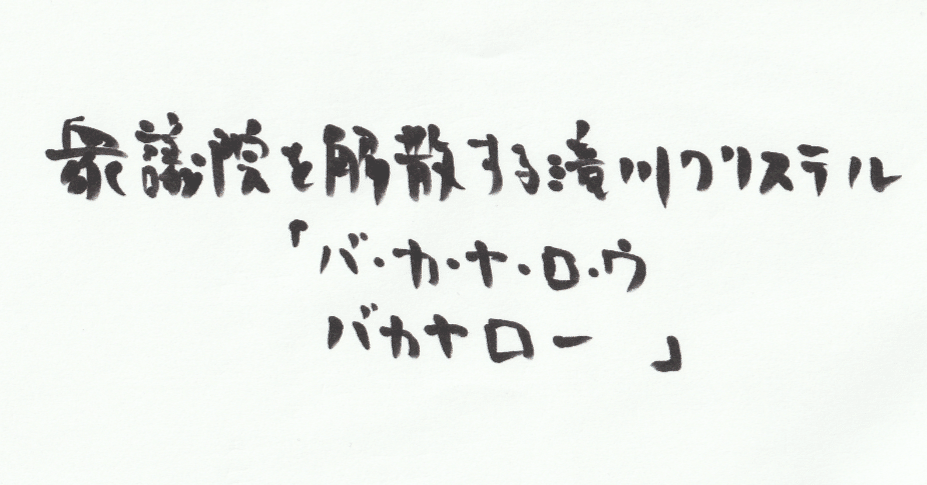 衆議院を解散する滝川クリステル
「バ・カ・ヤ・ロ・ウ
バカヤロー 」